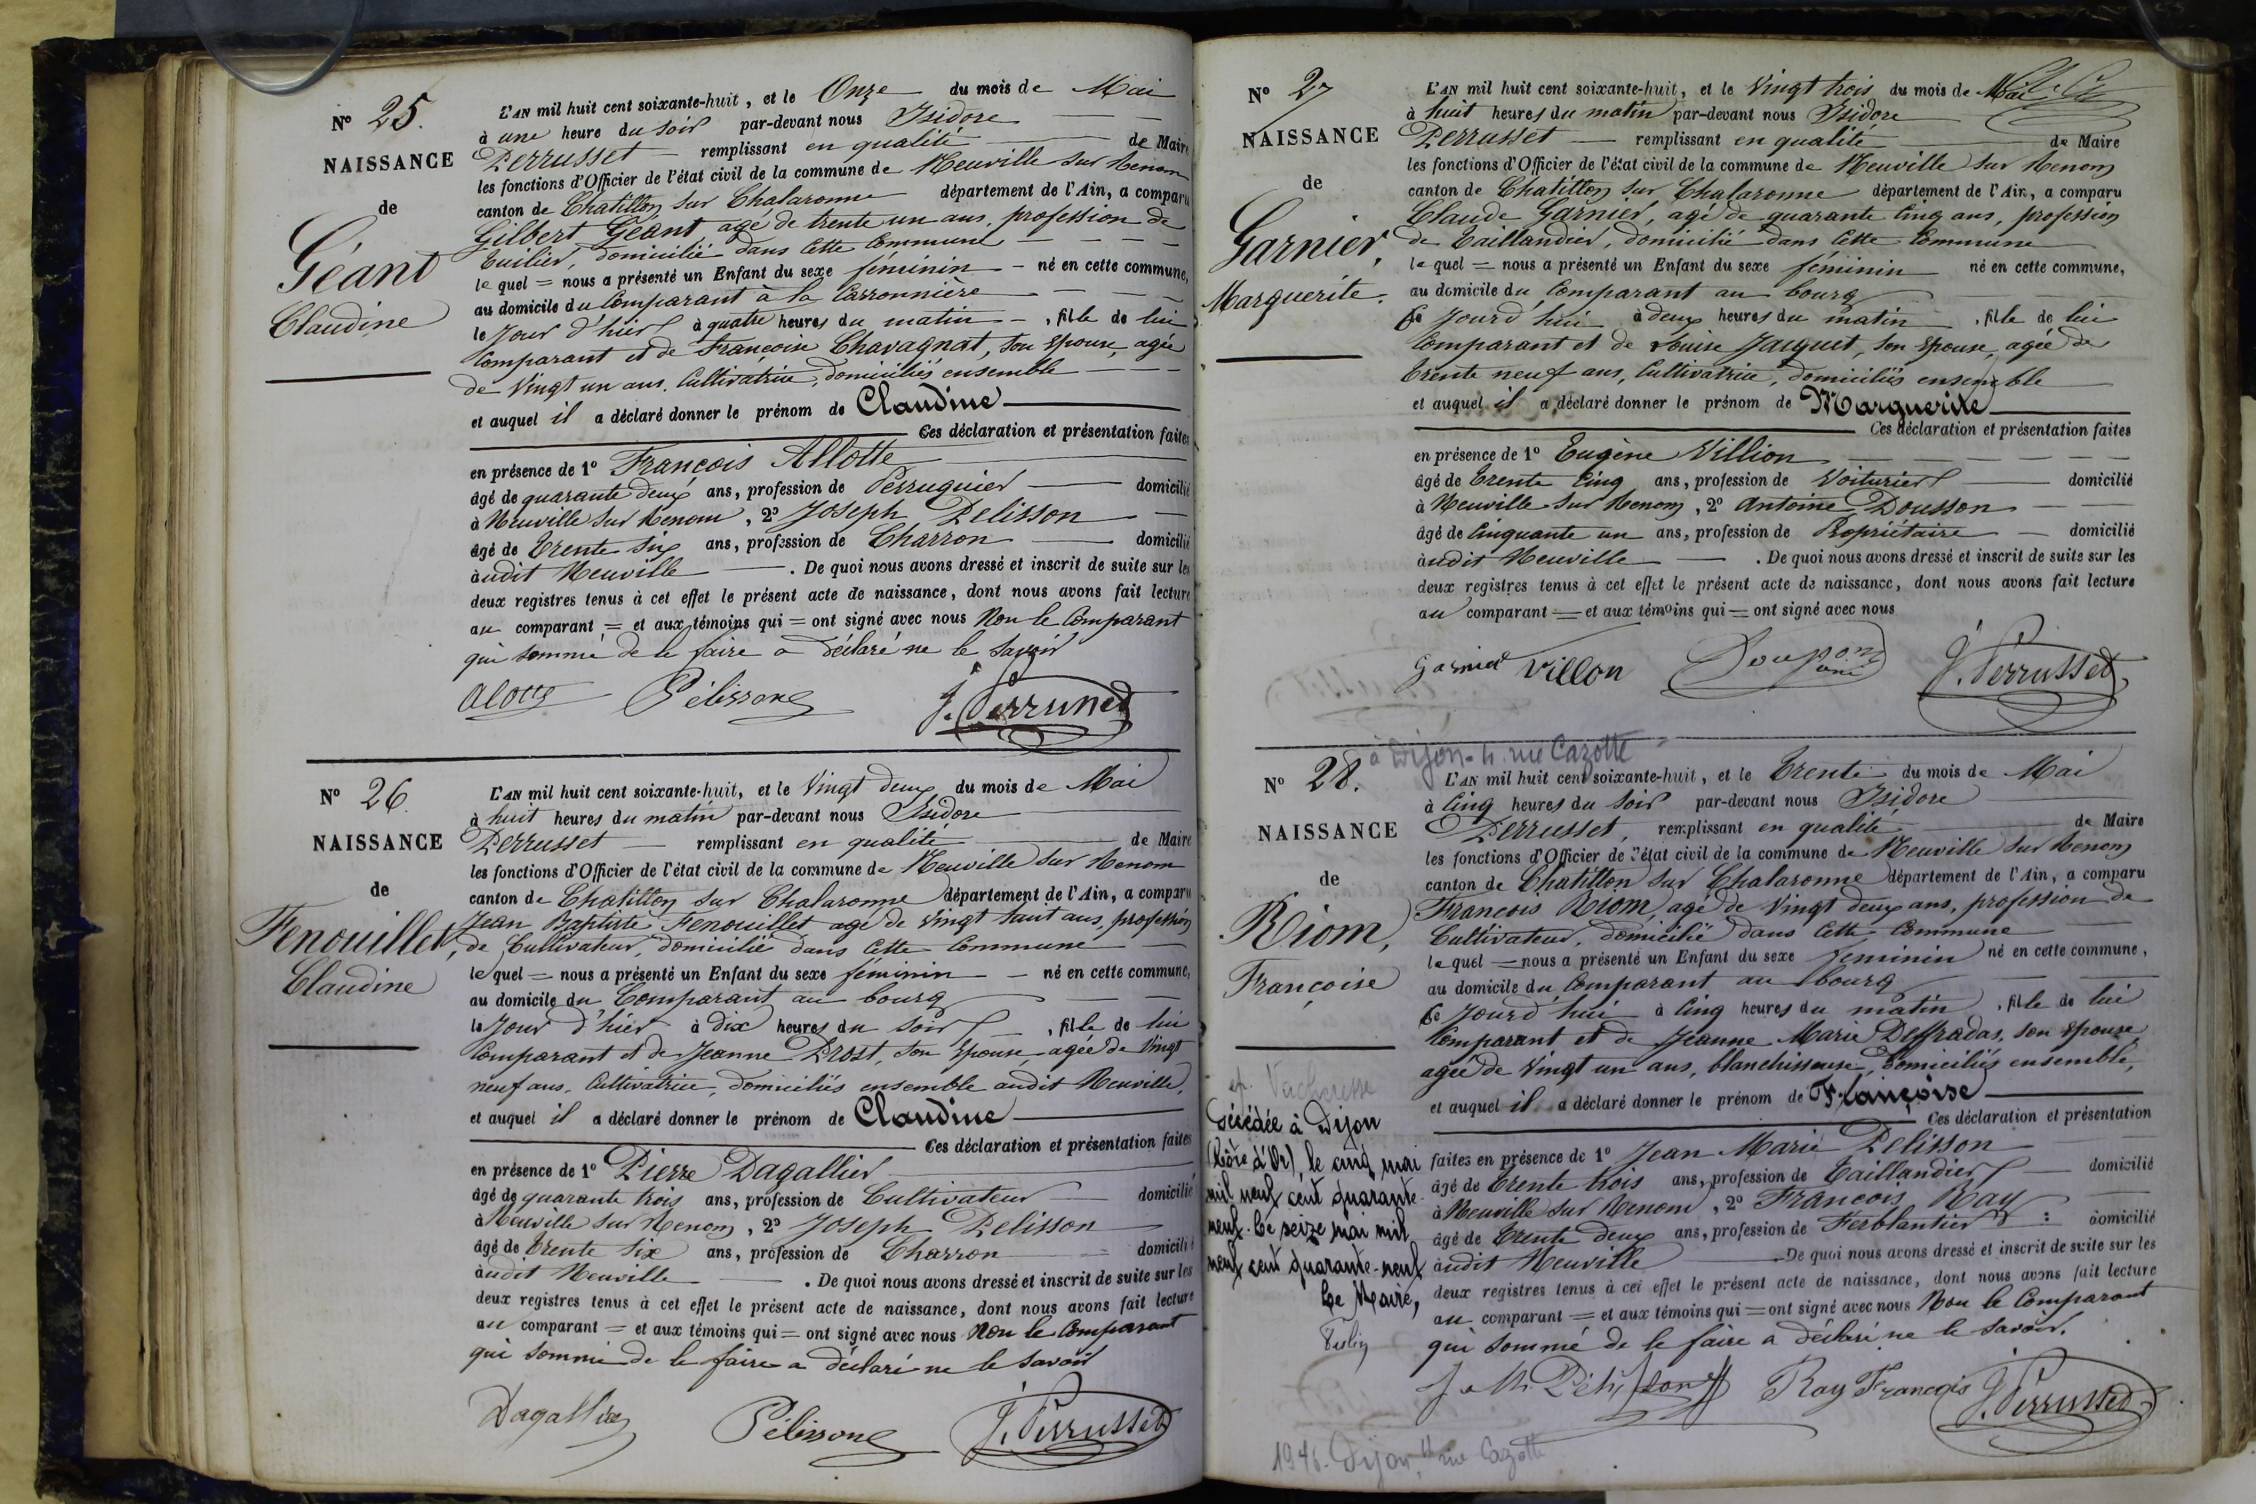 N° 25.
NAISSANCE
de
Géant
Claudine
L'AN mil huit cent soixante-huit, et le Onze du mois de Mai
à une heure du soir par-devant nous Isidore
Perrusset remplissant en qualité de Maire
les fonctions d'Officier de l'état civil de la commune de Neuville sur Renom
canton de Chatillon sur Chalaronne département de l'Ain, a comparu
Gilbert Géant, agé de trente un ans, profession de
Tuilier, domicilié dans cette Commune
le quel = nous a présenté un Enfant du sexe féminin né en cette commune,
au domicile du Comparant à la Carronnière
le Jour d'hier à quatre heures du matin , fille de lui
Comparant et de Françoise Chavagnat, son Epouse, agée
de Vingt un ans, Cultivatrice, domiciliés ensemble
et auquel il a déclaré donner le prénom de Claudine
Ces déclaration et présentation faites
en présence de 1° François Allotte
âgé de quarante deux ans, profession de Perruquier domicilié
à Neuville sur Renom, 2° Joseph Pelisson
âgé de Trente Six ans, profession de Charron domicilié
audit Neuville . De quoi nous avons dressé et inscrit de suite sur les
deux registres tenus à cet effet le présent acte de naissance, dont nous avons fait lecture
au comparant = et aux témoins qui = ont signé avec nous Non le Comparant
qui sommé de le faire a déclaré ne le savoir
alotte Pélisson J. Perrusset
N° 26
NAISSANCE
de
Fenouillet,
Claudine
L'AN mil huit cent soixante-huit, et le Vingt deux du mois de Mai
à huit heures du matin par-devant nous Isidore
Perrusset remplissant en qualité de Maire
les fonctions d'Officier de l'état civil de la commune de Neuville sur Renom
canton de Chatillon sur Chalaronne département de l'Ain, a comparu
Jean Baptiste Fenouillet agé de Vingt huit ans, profession
de Cultivateur, domicilié dans cette Commune
le quel = nous a présenté un Enfant du sexe féminin né en cette commune,
au domicile du Comparant au bourg
le Jour d'hier à dix heures du soir , fille de lui
Comparant et de Jeanne Prost, son Epouse, agée de Vingt
neuf ans, Cultivatrice, domiciliés ensemble audit Neuville,
et auquel il a déclaré donner le prénom de Claudine
Ces déclaration et présentation faites
en présence de 1° Pierre Dagallier
âgé de quarante trois ans, profession de Cultivateur domicilié
à Neuville sur Renom, 2° Joseph Pelisson
âgé de Trente Six ans, profession de Charron domicilié
audit Neuville . De quoi nous avons dressé et inscrit de suite sur les
deux registres tenus à cet effet le présent acte de naissance, dont nous avons fait lecture
au comparant = et aux témoins qui = ont signé avec nous Non le Comparant
qui sommé de le faire a déclaré ne le savoir
Dagallier Pélisson J. Perrusset
N° 27
NAISSANCE
de
Garnier,
Marguerite.
L'AN mil huit cent soixante-huit, et le Vingt trois du mois de Mai
à huit heures du matin par-devant nous Isidore
Perrusset remplissant en qualité de Maire
les fonctions d'Officier de l'état civil de la commune de Neuville sur Renom
canton de Châtillon sur Chalaronne département de l'Ain, a comparu
Claude Garnier, agé de quarante Cinq ans, profession
de Taillandier, domicilié dans cette Commune
le quel = nous a présenté un Enfant du sexe féminin né en cette commune,
au domicile du Comparant au bourg
ce Jourd'hui à deux heures du matin , fille de lui
Comparant et de Louise Jacquet, son Epouse, agée de
Trente neuf ans, Cultivatrice, domiciliés ensemble
et auquel il a déclaré donner le prénom de Marguerite
Ces déclaration et présentation faites
en présence de 1° Eugène Villion
âgé de Trente Cinq ans, profession de Voiturier domicilié
à Neuville sur Renom, 2° Antoine Dousson
âgé de Cinquante un ans, profession de Propriétaire domicilié
audit Neuville . De quoi nous avons dressé et inscrit de suite sur les
deux registres tenus à cet effet le présent acte de naissance, dont nous avons fait lecture
au comparant = et aux témoins qui = ont signé avec nous
Garnier Villon J. Perrusset
à Dijon - 4. rue Cazotte
N° 28.
NAISSANCE
de
Riom,
Françoise
L'AN mil huit cent soixante-huit, et le Trente du mois de Mai
à Cinq heures du soir par-devant nous Isidore
Perrusset, remplissant en qualité de Maire
les fonctions d'Officier de l'état civil de la commune de Neuville sur Renom
canton de Chatillon sur Chalaronne département de l'Ain, a comparu
François Riom, agé de Vingt deux ans, profession de
Cultivateur, domicilié dans cette Commune
le quel = nous a présenté un Enfant du sexe féminin né en cette commune,
au domicile du Comparant au bourg
ce Jourd'hui à Cinq heures du matin , fille de lui
Comparant et de Jeanne Marie Desfradas, son Epouse,
agée de Vingt un ans, blanchisseuse, domiciliés ensemble,
et auquel il a déclaré donner le prénom de Françoise
Ces déclaration et présentation
faites en présence de 1° Jean Marie Pelisson
âgé de Trente trois ans, profession de Taillandier domicilié
à Neuville sur Renom, 2° Francois Ray
âgé de Trente deux ans, profession de Ferblantier domicilié
audit Neuville De quoi nous avons dressé et inscrit de suite sur les
deux registres tenus à cet effet le présent acte de naissance, dont nous avons fait lecture
au comparant = et aux témoins qui = ont signé avec nous Non le Comparant
qui sommé de le faire a déclaré ne le savoir.
J M Pélisson Ray Francois J. Perrusset
ép. Vacheresse
Décédée à Dijon
(Côte d'Or), le cinq mai
mil neuf cent quarante-
neuf. Le seize mai mil
neuf cent quarante-neuf
Le Maire,
1946. Dijon, 4 rue Cazotte